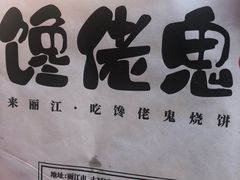 馋佬鬼
来丽江·吃馋佬鬼烧饼
地址:丽江市